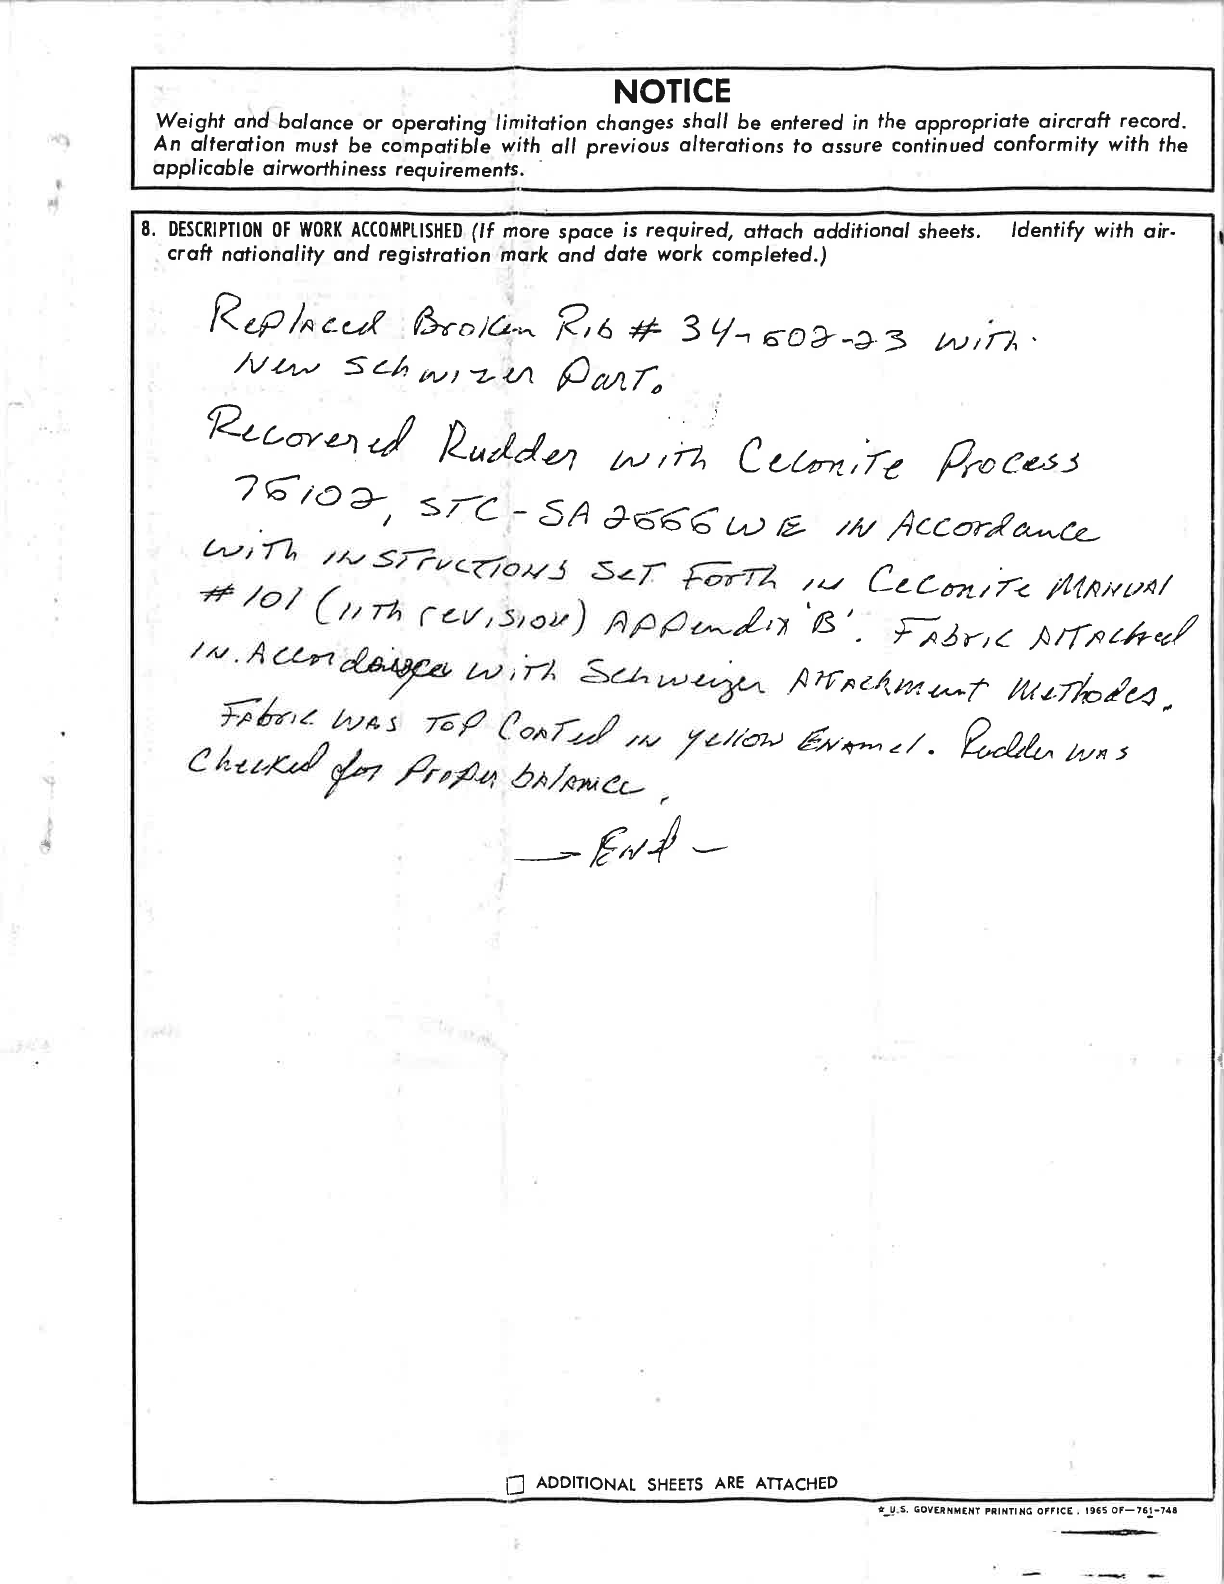 NOTICE
Weight and balance or operating limitation changes shall be entered in the appropriate aircraft record.
An alteration must be compatible with all previous alterations to assure continued conformity with the
applicable airworthiness requirements.
8. DESCRIPTION OF WORK ACCOMPLISHED (If more space is required, attach additional sheets. Identify with air-
craft nationality and registration mark and date work completed.)
Replaced Broken Rib # 34-602-23 with
New Schwizer Part.
Recovered Rudder with Ceconite Process
76102, STC-SA2666WE IN Accordance
with INSTructIONS SeT ForTh IN CeConiTe MANUAl
#101 (11Th revision) APPendix 'B'. FAbric ATTAched
IN. Accordance with Schweizer ATTAchment Methodes.
FAbric WAS TOP CoATed IN Yellow ENAmel. Rudder WAS
Checked for Proper bAlAnce.
— End —
ADDITIONAL SHEETS ARE ATTACHED
☆ U.S. GOVERNMENT PRINTING OFFICE . 1965 OF—761-748